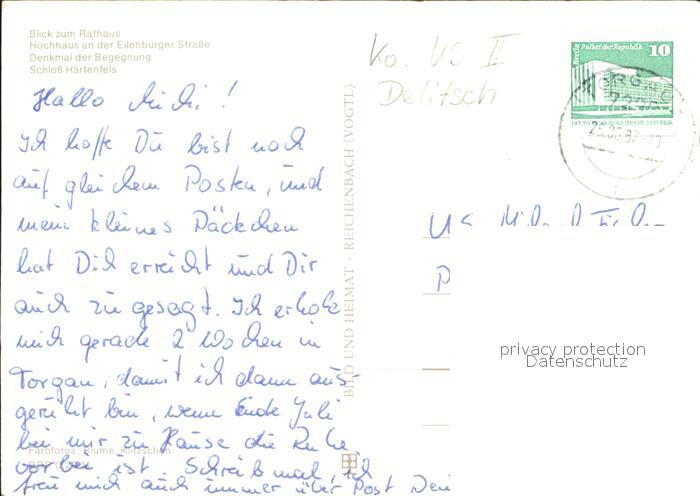 Blick zum Rathaus
Hochhaus an der Eilenburger Straße
Denkmal der Begegnung
Schloß Hartenfels
Ko. US II
Delitsch
Berlin Palast der Republik 10
DEUTSCHE DEMOKRATISCHE REPUBLIK
Hallo Michi!
Ich hoffe Du bist noch
auf gleichem Posten, und
mein kleines Päckchen
hat Dich erreicht und Dir
auch zu gesagt. Ich erhole
mich gerade 2 Wochen in
Torgau, damit ich dann aus-
geruht bin, wenn Ende Juli
bei mir zu Hause die Ruhe
vorbei ist. Schreib mal, ich
freu mich auch immer über Post
Farbfotos: Blume, Klitzschen
BILD UND HEIMAT · REICHENBACH (VOGTL)
privacy protection
Datenschutz